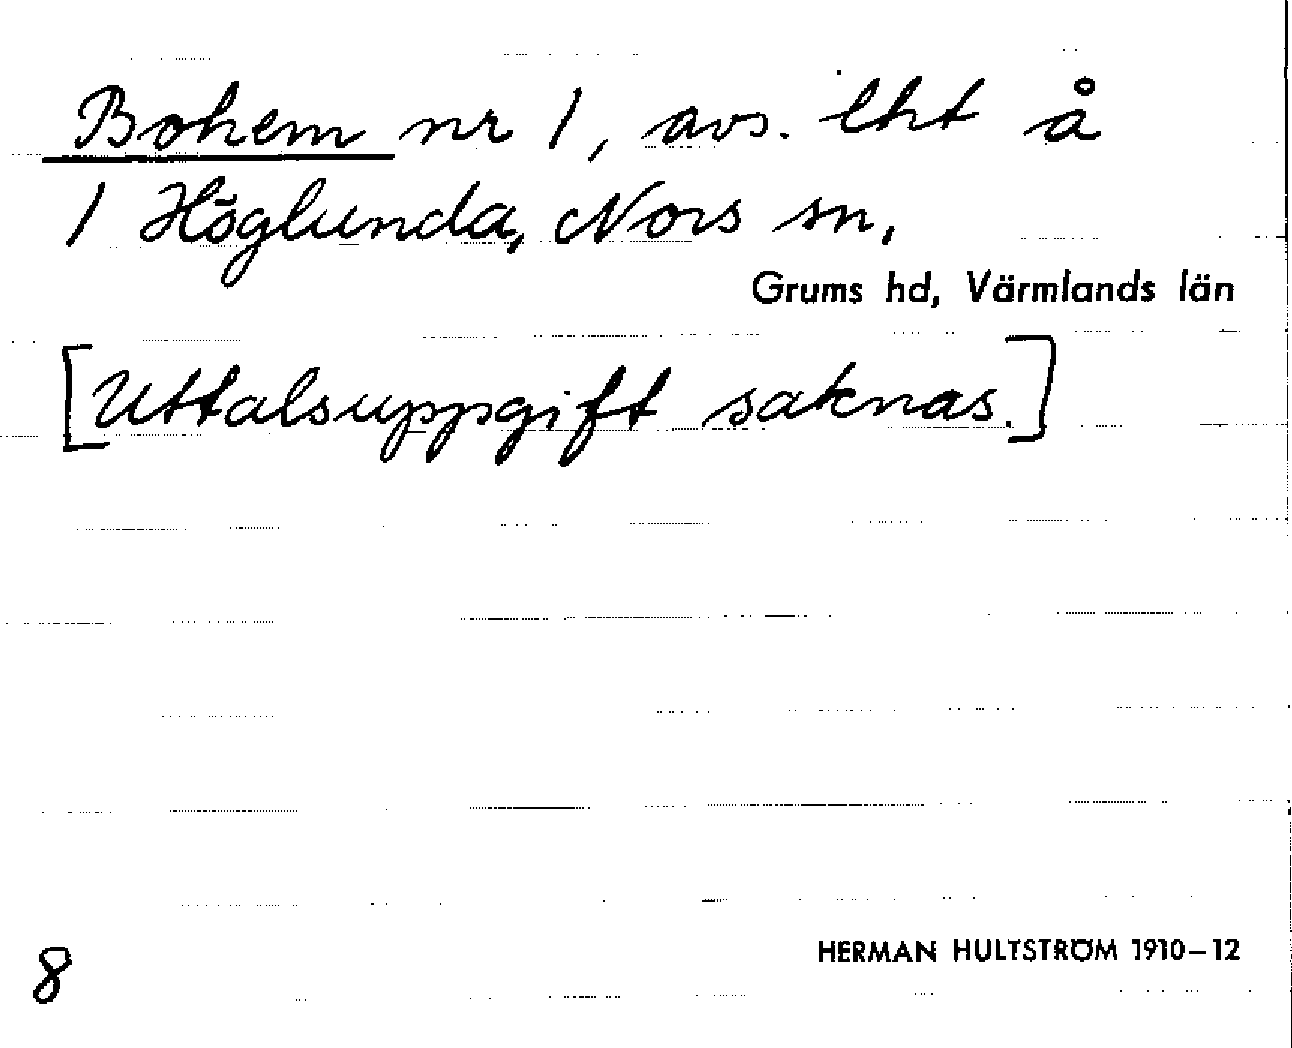 Bohem nr 1, avs. lht å
1 Höglunda, Nors sn,
Grums hd, Värmlands län
[Uttalsuppgift saknas.]
8
HERMAN HULTSTRÖM 1910–12